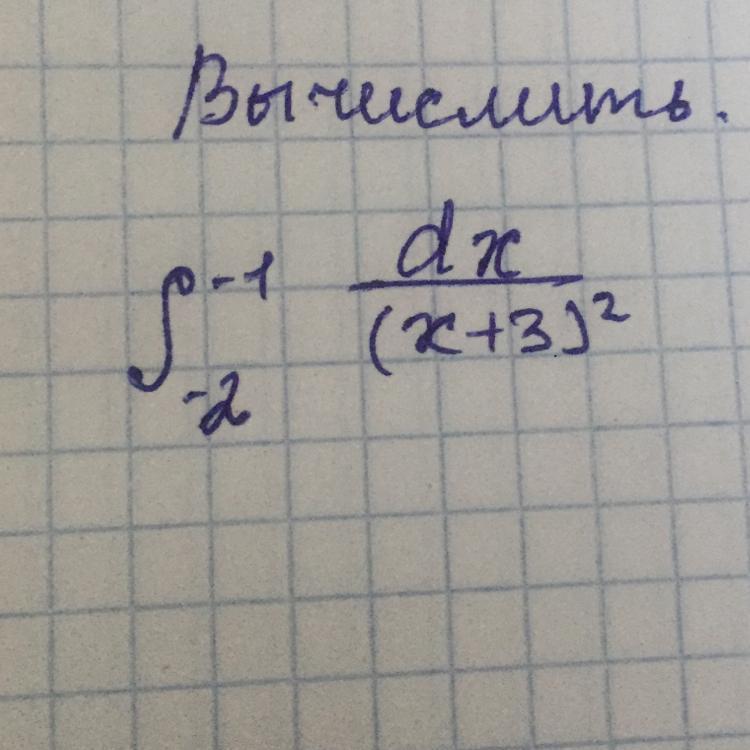 Вычислить.
∫₋₂⁻¹ dx/(x+3)²